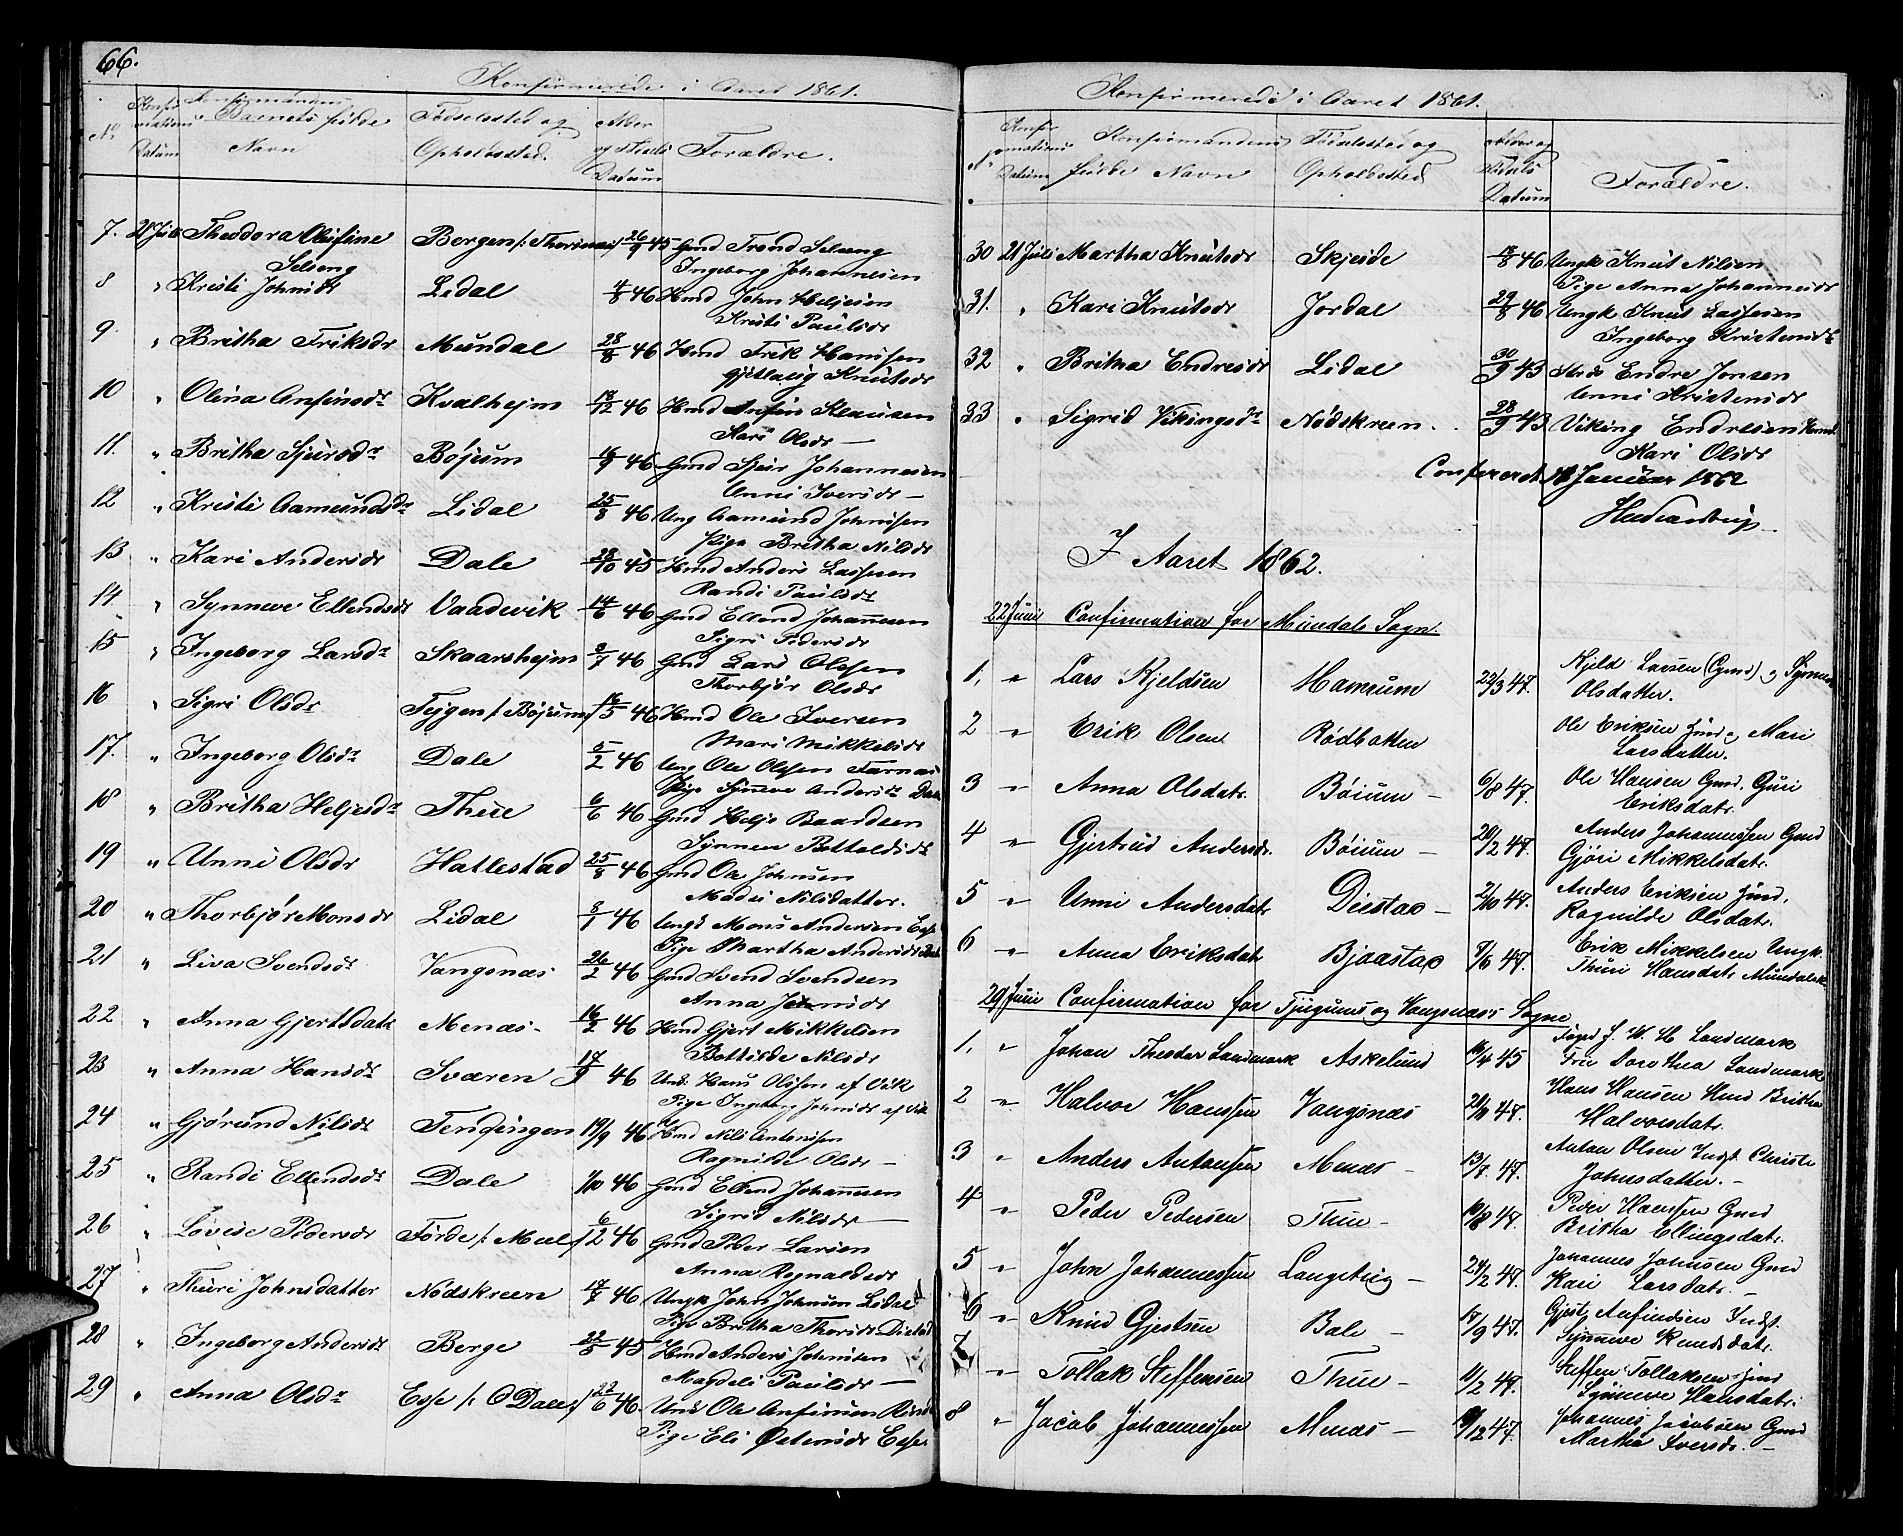 66.
Konfirmerede i Aaret 1861.
No Konfirmations Datum Konfirmandens Barnets fulde Navn Fødselssted og Opholdssted. Alder og Fødsels Datum Forældre.
7. 21 Juli Theodora Olufine Bergen /: Thorsnæs / 26/9 45 Gmd Trond Selseng
Selseng Ingeborg Johannesen
8 " Kristi Johnsdr Lidal 4/8 46 Hmd John Heljesen
Kristi Paulsdr
9. " Britha Eriksdr Mundal 28/8 46 Hmd Erik Hanssen
Gjertrud Knutsdr
10 " Olina Anfinsdr Kvalhejm 18/12 46 Hmd Anfin Klausen
Kari Olsdr —
11. " Britha Sjursdr Bøjum 16/9 46 Gmd Sjur Johannesen
Unni Iversdr —
12 " Kristi Aamundsdr Lidal 25/8 46 Ung Aamund Johnssen
Pige Britha Nilsdr
13 " Kari Andersdr Dale 28/10 45 Hmd Anders Lassesen
Randi Paulsdr
14 " Synneve Ellendsdr Vaadevik 14/6 46 Gmd Ellend Johannesen
Sigri Pedersdr
15 " Ingeborg Larsdr Skaarshejm 3/7 46 Gmd Lars Olssen
Thorbjør Olsdr
16 " Sigri Olsdr Fejgen /: Bøjum / 16/5 46 Hmd Ole Iversen
Mari Mikkelsdr
17. " Ingeborg Olsdr Dale 5/2 46 Ung Ole Olssen Farnæs
Pige Synneve Andersdr Dale
18 " Britha Heljesdr Thue 6/6 46 Gmd Helje Baardsen
Synneve Bottolfsdr
19 " Unni Olsdr Hatlestad 25/8 46 Gmd Ole Johnsen
Madli Nilsdatter.
20 " Thorbjør Monsdr Lidal 3/1 46 Ungk Mons Andersen Esse
Pige Martha Andersdr
21 " Liva Svendsdr Vangsnæs 26/2 46 Gmd Svend Svendsen
Anna Johnsdr
22 " Anna Gjertsdatr Menæs - 16/2 46 Hmd Gjert Mikkelsen
Bottilde Nilsdr
23 " Anna Hansdr Sværen 17/9 46 Und. Hans Olssen af Vik
Pige Ingeborg Johnsdr af Vik
24 " Gjørund Nilsdr Tenqingen 19/9 46 Hmd Nils Antonssen
Ragnilde Olsdr —
25 " Randi Ellendsdr Dale 1/10 46 Gmd Ellend Johannesen
Sigrid Nilsdr —
26 " Lovise Pedersdr Førde /: Mæl / 6/12 46 Gmd Peder Larsen
Anna Ragnaldsdr
27 " Thuri Johnsdatter Nødskreen 17/7 46 Ungk John Johnsen Lidal
Pige Britha Thorsdr Distad
28 " Ingeborg Andersdr Berge 22/5 45 Hmd Anders Johnsen
Magdeli Paulsdr —
29 " Anna Olsdr Esse /: O Dale / 22/6 46 Und Ole Anfinsen Rinde
Pige Eli Østensdr Esse
Konfirmerede i Aaret 1861.
No Konfirmations Datum Konfirmandens fulde Navn Fødselssted og Opholdssted Alder og Fødsels Datum Forældre.
30 21 Juli Martha Knutsdr Skjeide 17/8 46 Ungk Knut Nilsen
Pige Anna Johannesdr
31. " Kari Knutsdr Jordal 29/8 46 Ungk Knut Lassesen
Ingeborg Kristensdr
32 " Britha Endresdr Lidal 30/9 43 Endre Jonsen
Unni Kristensdr
33 " Sigrid Vikingsdr Nødskreen. 28/9 43 Viking Endresen Hmd
Kari Olsdr
Confereret Januar 1862
I Aaret 1862.
22 Juni Confirmation for Mundals Sogn.
1, " Lars Kjeldsen Hamrum 22/3 47. Kjeld Larsen (Gmd) og Synneve
Olsdatter.
2 " Erik Olsen Rødbotten Ole Eriksen Jnd og Mari
Larsdatter.
3 " Anna Olsdatr. Bøium — 6/8 47. Ole Hansen Gmd. Guri
Eriksdatr.
4 " Gjertrud Andersdr. Bøium — 20/2 47. Anders Johannessen Gmd
Gjøri Mikkelsdatr.
5 " Unni Andersdatr Distad — 2/10 47. Anders Eriksen Jnd.
Ragnilde Olsdatr.
6 " Anna Eriksdatr Bjaastad 7/6 47. Erik Mikkelsen Ungk.
Thuri Hansdatr Mundalsk
29 Juni Confirmation for Tjugums og Vangsnæs's Sogne
1, " Johan Theodor Landmark Askelund 15/4 45 Foged J. W. H Landmark
Fru Dorothea Landmark
2 " Halvor Hanssen Vangsnæs 21/10 47. Hans Hansen Hmd Britha
Halvorsdatr.
3 " Anders Antonsen Menæs — 13/7 47. Anton Olsen Indst. Christi
Johnsdatter. —
4 " Peder Pedersen Thue — 10/8 47. Peder Hanssen Gmd
Britha Ellingsdatr.
5 " John Johannessen Langeteig — 24/2 47. Johannes Johnsen Gmd
Kari Larsdatr. —
6 " Knud Gjertsen Bale — 17/9 47. Gjert Anfindsen Indst.
Synneve Knudsdatr.
7 " Tollak Steffensen Thue — 11/2 47. Steffen Tollaksen Jnd
Synneve Hansdatr.
8 " Jacob Johannessen Menæs — 9/12 47. Johannes Jacobsen Gmd
Martha Iversdr. —